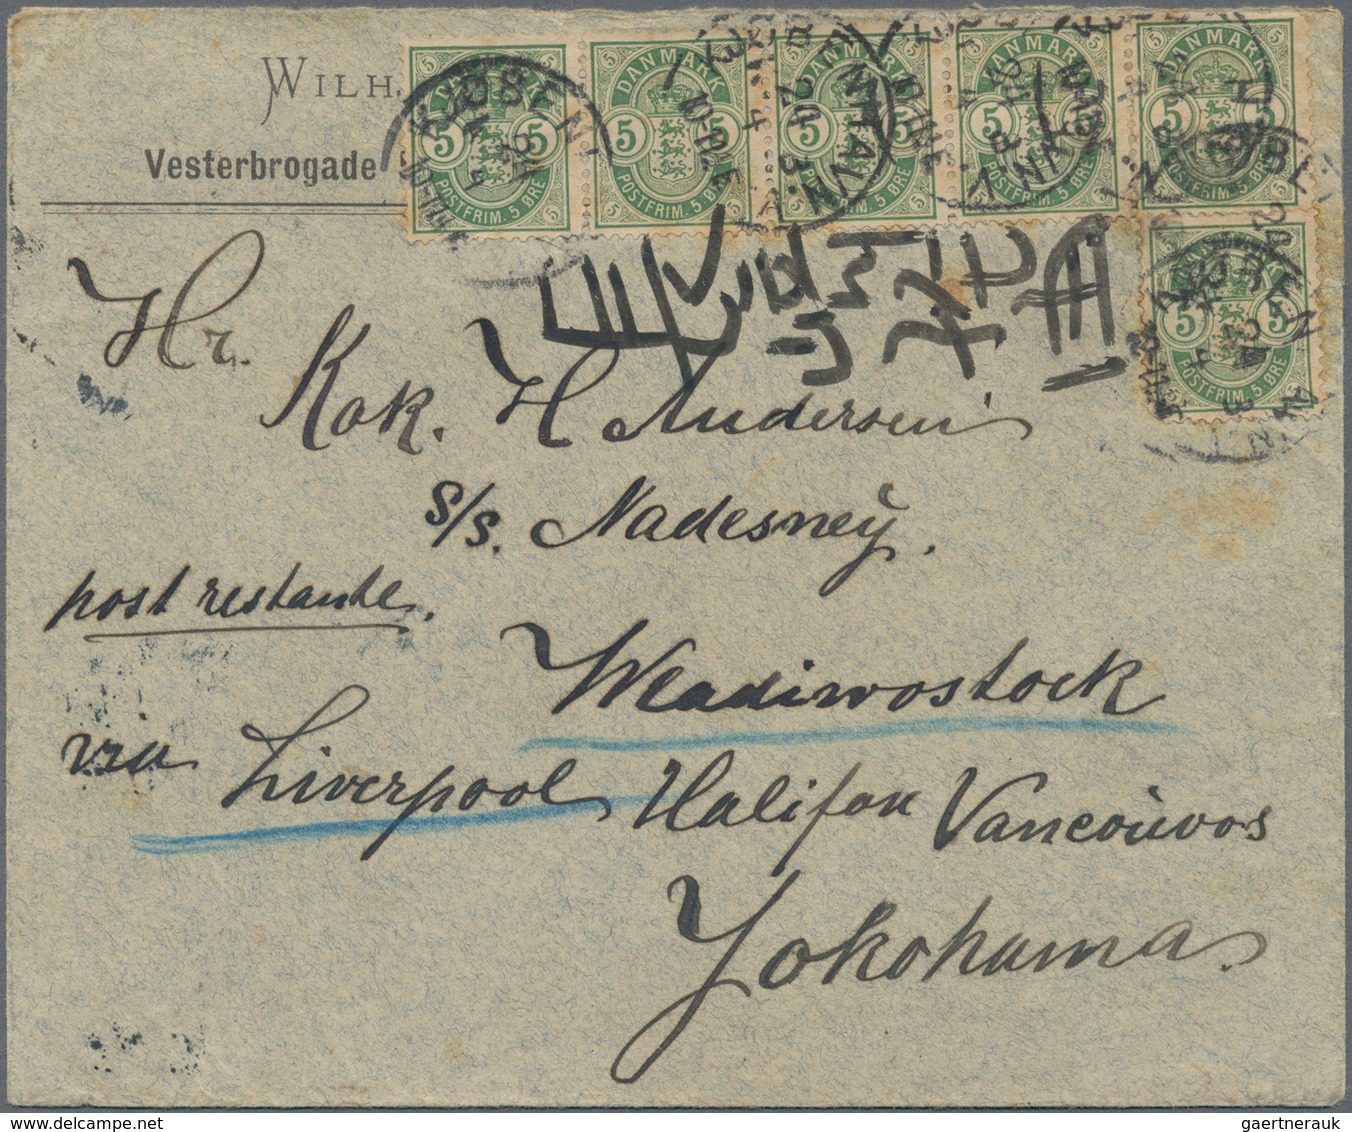 WILH.
Vesterbrogade
DANMARK 5 5 POSTFRIM. 5 ØRE
DANMARK 5 5 POSTFRIM. 5 ØRE
DANMARK 5 5 POSTFRIM. 5 ØRE
DANMARK 5 5 POSTFRIM. 5 ØRE
DANMARK 5 5 POSTFRIM. 5 ØRE
DANMARK 5 5 POSTFRIM. 5 ØRE
Hr.
Kok. H Andersen
S/S. Nadesney.
post restante.
Wladiwostock
via Liverpool Halifax Vancouvos
Yokohama
gaertnerauk